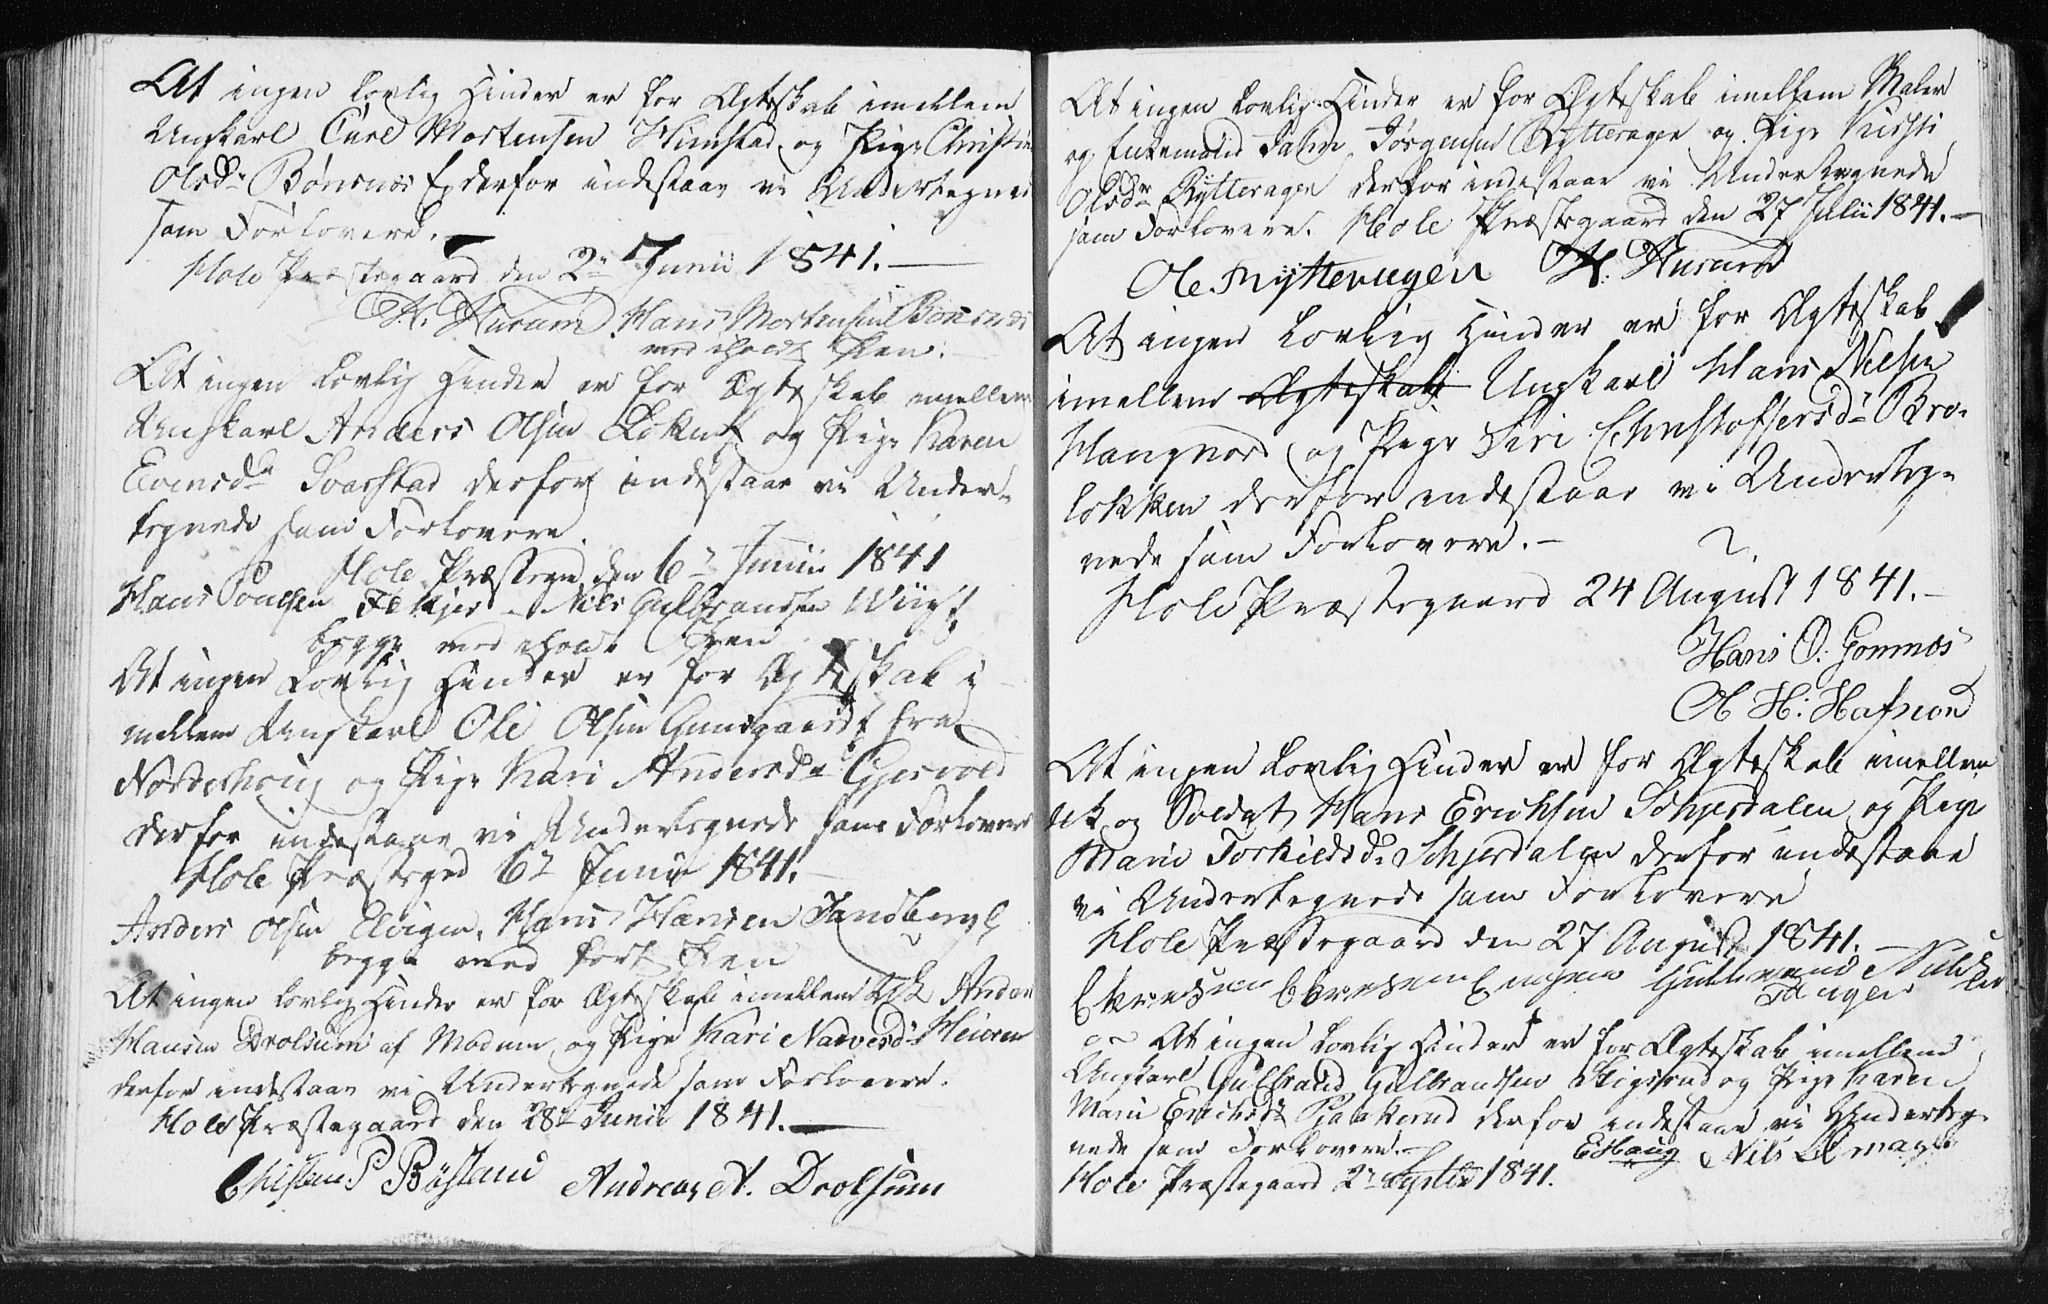 At ingen Lovlig Hinder er for Ægteskab imellem
Unkarl Carl Mortensen Hiimstad og Pige Christi
Olsdr Bønsnæs E derfor indestaar vi Undertegnede
som Forlovere.
Hole Præstegaard den 2n Junii 1841.
H. Hurum Hans Mortensen Bønsnæs
med iholdt Pen.
At ingen Lovlig Hinder er for Ægteskab imellem
Unkarl Anders Olsen og Pige Karen
Evensdr Svarstad derfor indestaar vi Under-
tegnede som Forlovere.
Hole Præstegrd den 6n Junii 1841
Hans Feksjer - Nils Gulbrandsen Wiig
begge med iholdt Pen
At ingen Lovlig Hinder er for Ægteskab i
mellem Unkarl Ole Olsen fra
Norderhoug og Pige Kari Andersdr Gjesvold
derfor indestaar vi Undertegnede som Forlovere
Hole Præstegrd 6n Junii 1841.
Anders Olsen Elvigen, Hans Hansen
begge med ført Pen
At ingen Lovlig Hinder er for Ægteskab imellem Uk Anders
Hansen Drolsum af Modum og Pige Kari Narvesdr Heieren
derfor indestaar vi Undertegnede som Forlovere.
Hole Præstegaard den 28n Junii 1841.
Christian P Bøstam Andreas A. Drolsum
At ingen Lovlig Hinder er for Ægteskab imellem Maler
og Enkemand Jørgensen Rytteragen og Pige Kirsti
Olsdr Rytteragen derfor indestaar vi Undertegnede
som Forlovere. Hole Præstegaard den 27 Julii 1841.
Ole Rytteragen H. Hurum
At ingen Lovlig Hinder er for Ægteskab
imellem Ægteskab Ungkarl Hans Nilsen
og Pige Siri Christoffersdr Bro-
løkken derfor indestaar vi Underteg-
nede som Forlovere.
Hole Præstegaard 24 August 1841.
Hans O: Gomnæs
O H:
At ingen Lovlig Hinder er for Ægteskab imellem
Uk og Soldat Hans Erichsen Schjerdalen og Pige
Marie Torkildsdr Schjerdalen derfor indestaar
vi Undertegnede som Forlovere
Hole Præstegaard den 27 August 1841.
At ingen Lovlig Hinder er for Ægteskab imellem
Unkarl Gulbrand Gulbrandsen og Pige Karen
Marie Erichsdr derfor indestaar vi Underteg-
nede som Forlovere. E Haug Nils
Hole Præstegaard 2n Septbr 1841.